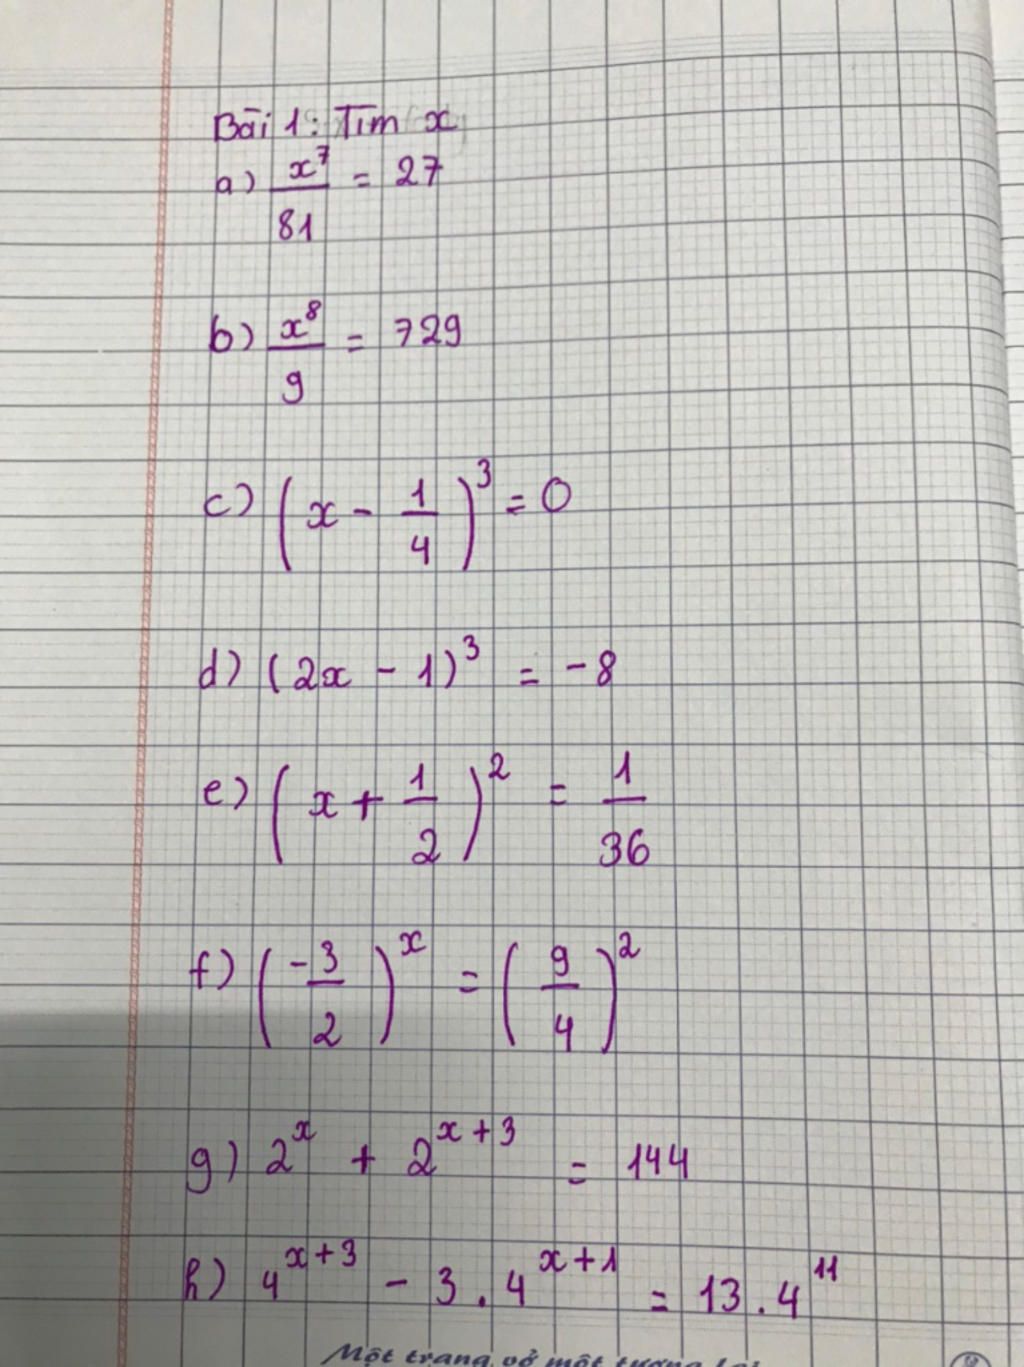 Bài 1: Tìm x
a) x⁷/81 = 27
b) x⁸/9 = 729
c) (x - 1/4)³ = 0
d) (2x - 1)³ = -8
e) (x + 1/2)² = 1/36
f) (-3/2)ˣ = (9/4)²
g) 2ˣ + 2ˣ⁺³ = 144
h) 4ˣ⁺³ - 3 . 4ˣ⁺¹ = 13 . 4¹¹
Một trang vở một tương lai